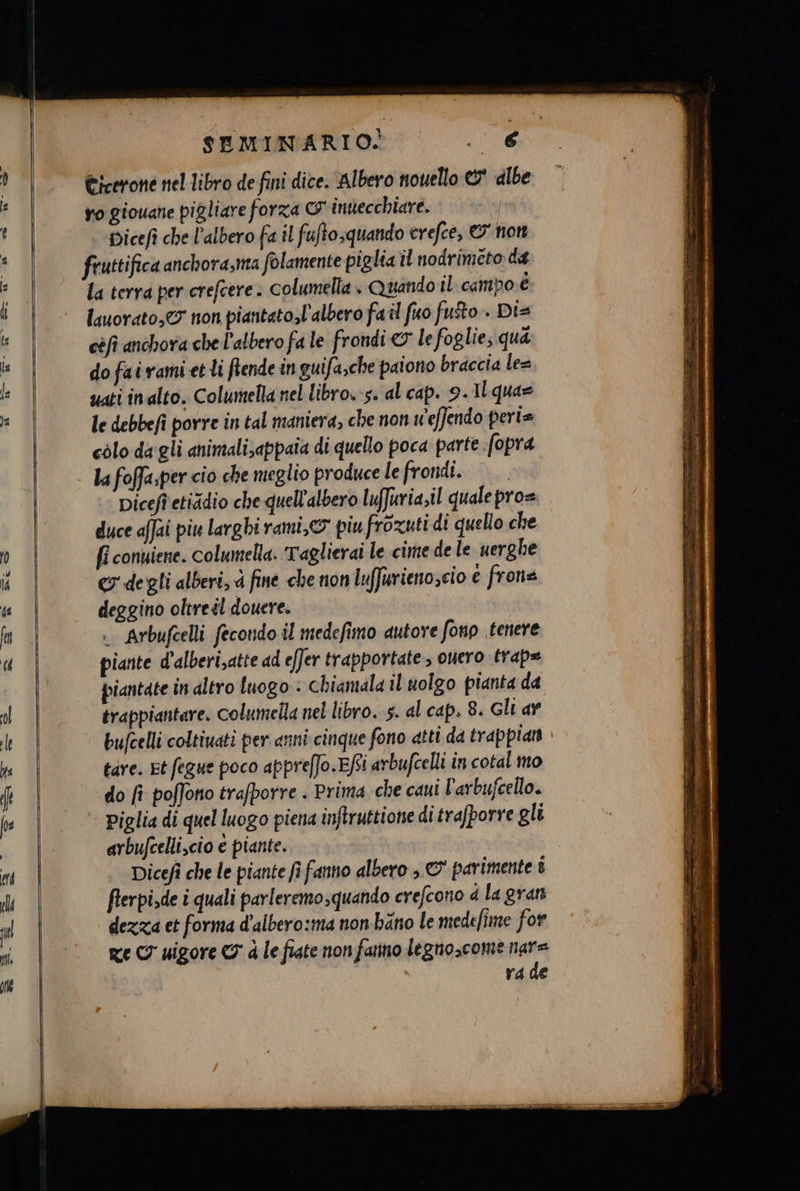 SEMINARIO. 6
Cicerone nel libro de fini dice. Albero nouello & albe
ro giouane pigliare forza & inuecchiare.
Dicesi che l'albero fa il fusto,quando cresce, & non
fruttifica anchora,ma solamente piglia il nodrimēto da
la terra per crescere. Columella. Quando il campo è
lauorato,& non piantato,l'albero fa il suo fusto. Di=
cēsi anchora che l'albero fa le frondi & le foglie, quā
do fa i rami et li stende in guisa,che paiono braccia le=
uati in alto. Columella nel libro. 5. al cap. 9. Il qua=
le debbesi porre in tal maniera, che non u'essendo peri=
còlo da gli animali,appaia di quello poca parte sopra
la fossa,per cio che meglio produce le frondi.
Dicesi etiādio che quell'albero lussuria,il quale pro=
duce assai piu larghi rami,& piu frōzuti di quello che
si conuiene. Columella. Taglierai le cime de le uerghe
& de gli alberi, à fine che non lussurieno,cio è fron=
deggino oltre il douere.
Arbuscelli secondo il medesimo autore sono tenere
piante d'alberi,atte ad esser trapportate, ouero trap=
piantate in altro luogo: chiamala il uolgo pianta da
trappiantare. Columella nel libro. 5. al cap. 8. Gli ar
buscelli coltiuati per anni cinque sono atti da trappian
tare. Et segue poco appresso.Essi arbuscelli in cotal mo
do si possono trasporre. Prima che caui l'arbuscello.
Piglia di quel luogo piena instruttione di trasporre gli
arbuscelli,cio è piante.
Dicesi che le piante si fanno albero, & parimente i
sterpi,de i quali parleremo,quando crescono à la gran
dezza et forma d'albero:ma non hāno le medesime for
ze & uigore & à le fiate non fanno legno,come nar=
ra de